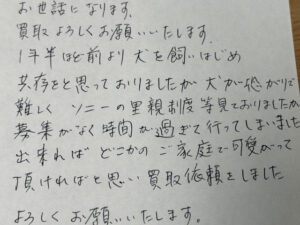 お世話になります。
買取 よろしくお願いいたします。
1年半ほど前より 犬を飼いはじめ
共存をと思っておりましたが 犬が恐がりで
難しく ソニーの里親制度等見ておりましたが
募集がなく時間が過ぎて行ってしまいました
出来れば どこかの ご家庭で可愛がって
頂ければと思い 買取依頼をしました
よろしく お願いいたします。